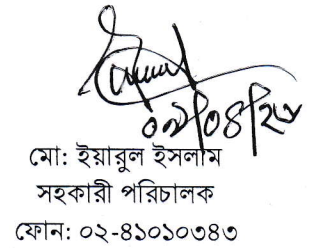 ০৯/০৪/২৩
মো: ইয়ারুল ইসলাম
সহকারী পরিচালক
ফোন: ০২-৪১০১০৩৪৩